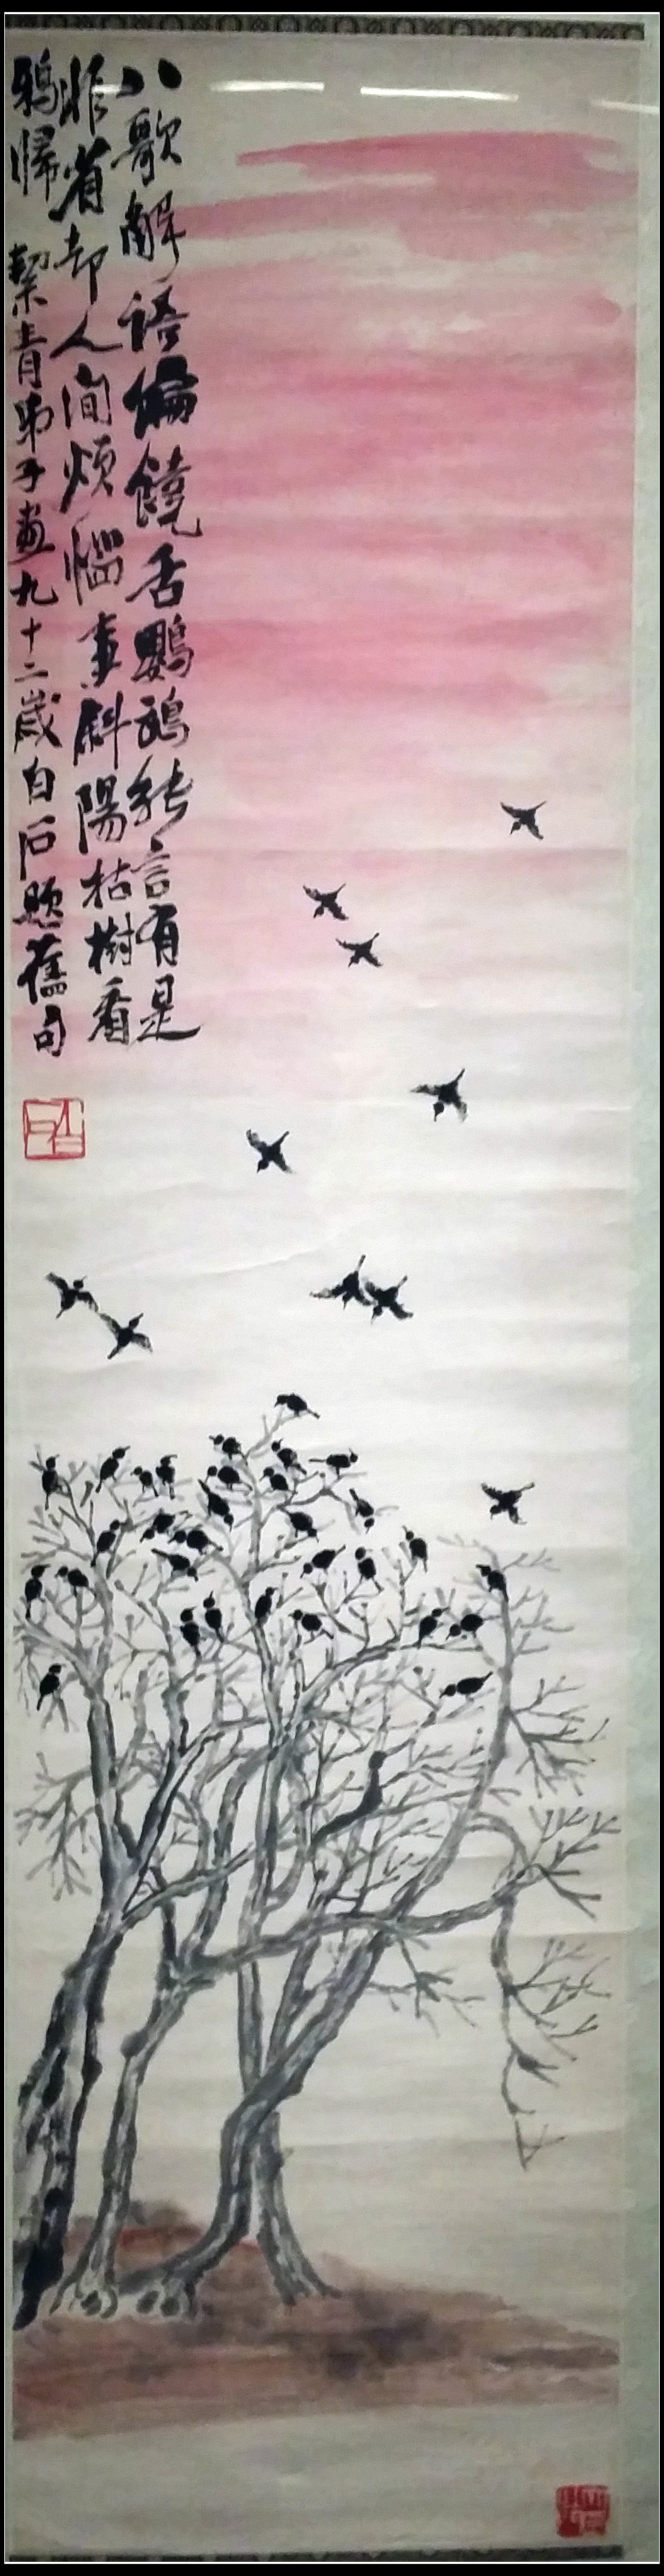 八歌解语偏饒舌鸚鵡能言有是
非省却人間煩惱事斜陽枯樹看
鴉歸 絜青弟子畫九十二歲白石題舊句